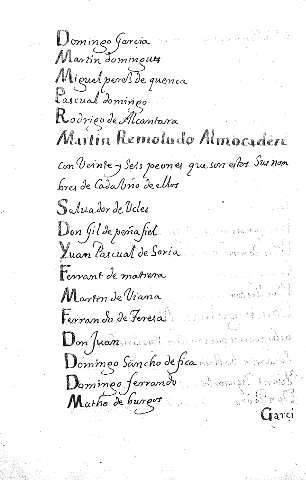 Domingo Garcia
Martin domingues
Miguel peres de quenca
Pascual domingo
Rodrigo de Alcantara
Martin Remolado Almocaden
con Veinte y Seis peones que son estos Sus nom
bres de Cada Uno de ellos
Salvador de Ucles
Don Gil de peñafiel
Yuan Pascual de Soria
Ferrant de matrera
Martin de Viana
Ferrando de Teresa
Don Juan
Domingo Sancho de fica
Domingo ferrando
Matho de burgos
Garci